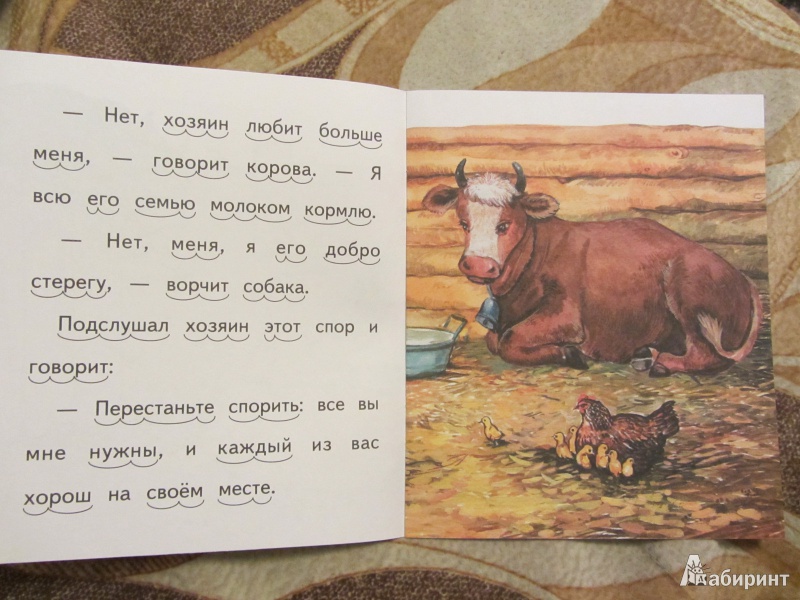 — Нет, хозяин любит больше
меня, — говорит корова. — Я
всю его семью молоком кормлю.
— Нет, меня, я его добро
стерегу, — ворчит собака.
Подслушал хозяин этот спор и
говорит:
— Перестаньте спорить: все вы
мне нужны, и каждый из вас
хорош на своём месте.
Лабиринт